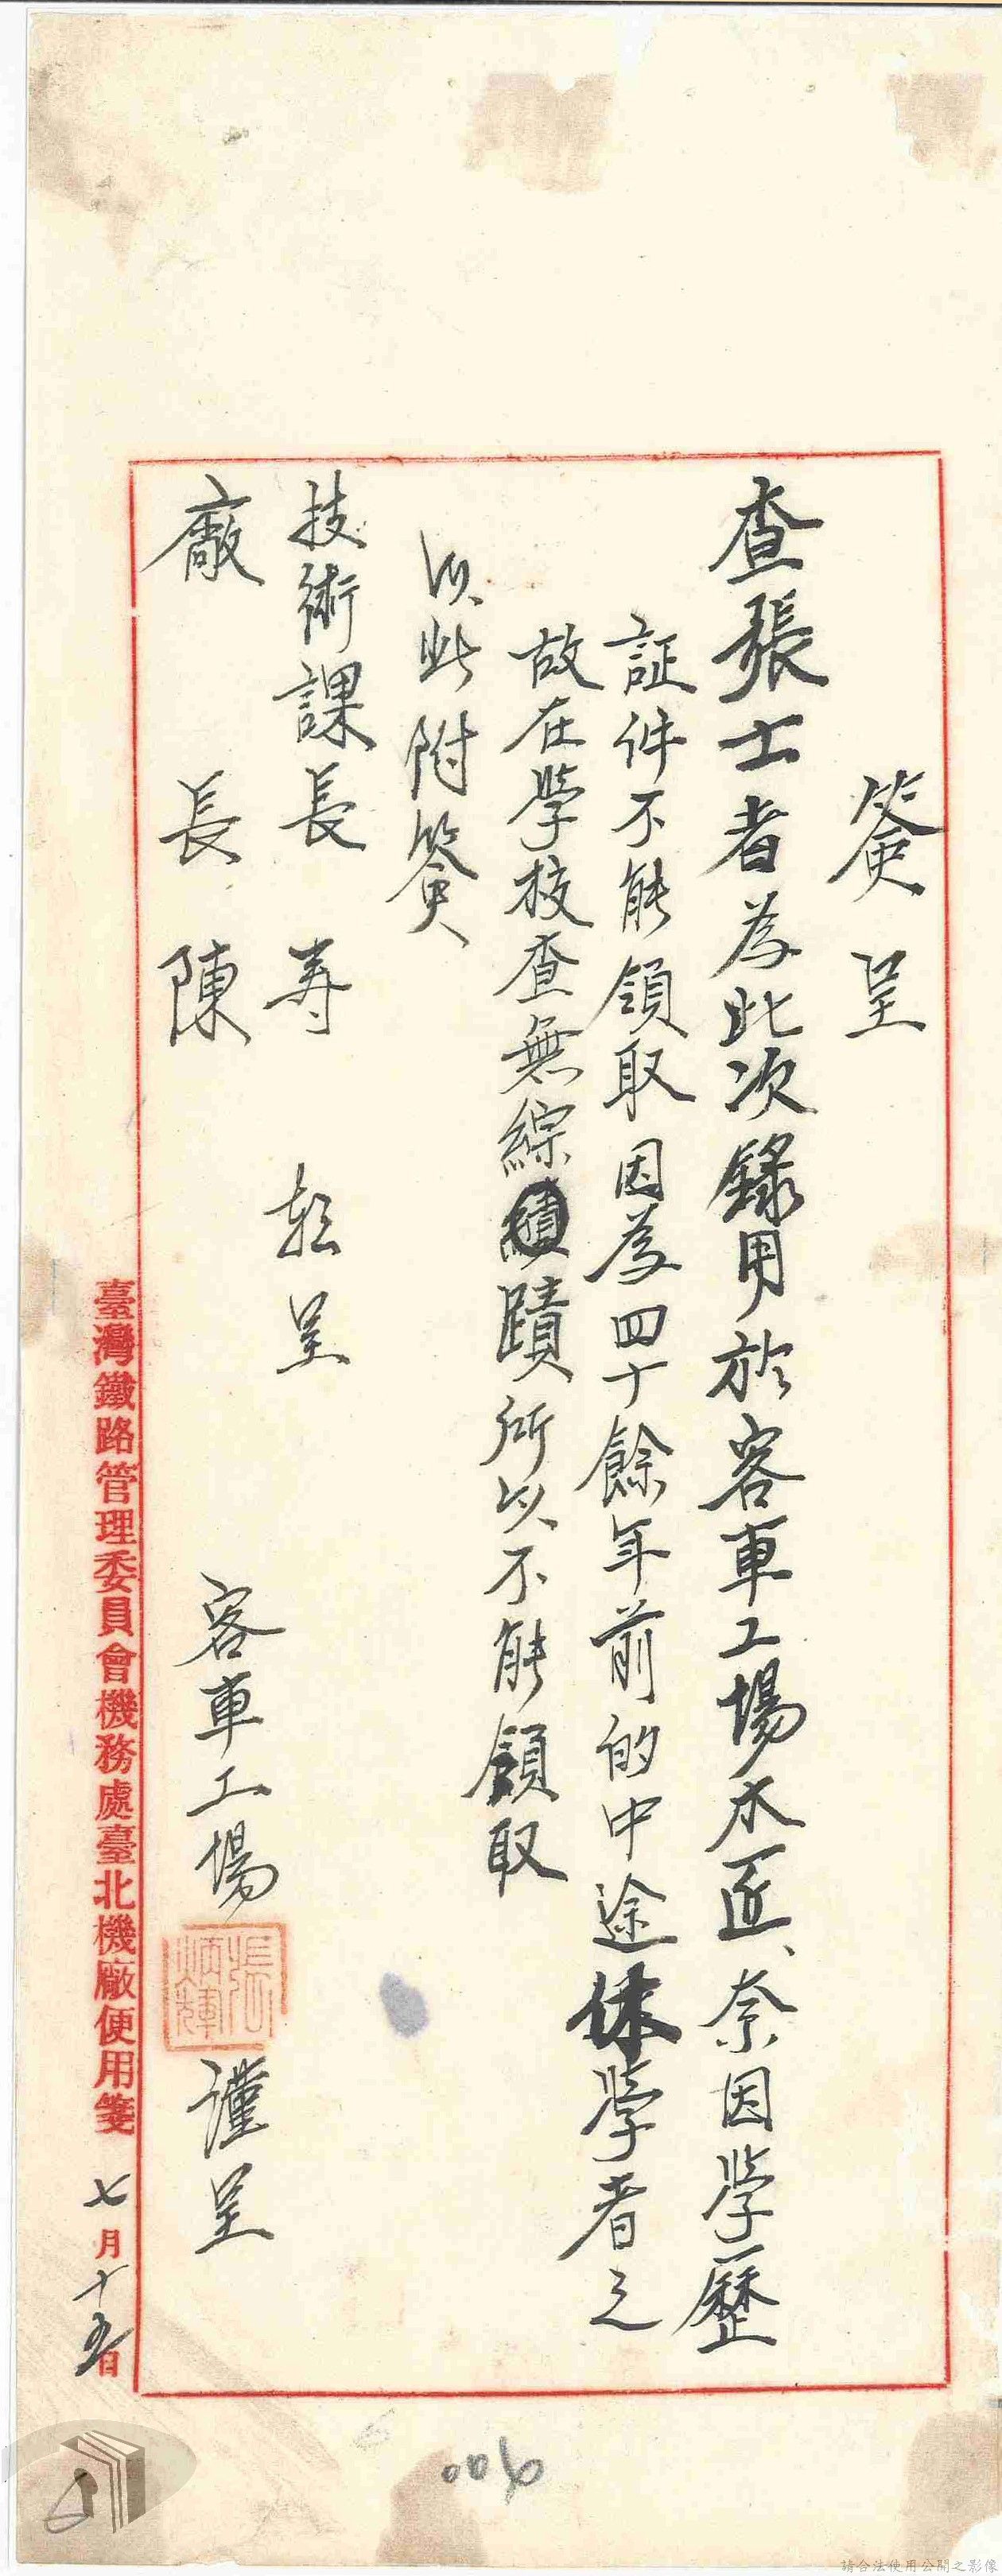 簽呈
查張士者為此次錄用於客車工場木匠、奈因學歷
証件不能領取因為四十餘年前的中途休學者之
故在學校查無綜蹟所以不能領取
以此附簽
技術課長 寿 轉呈
廠 長 陳
客車工場 張炳輝 謹呈
臺灣鐵路管理委員會機務處臺北機廠便用箋 七月十五日
900
請合法使用公開之影像